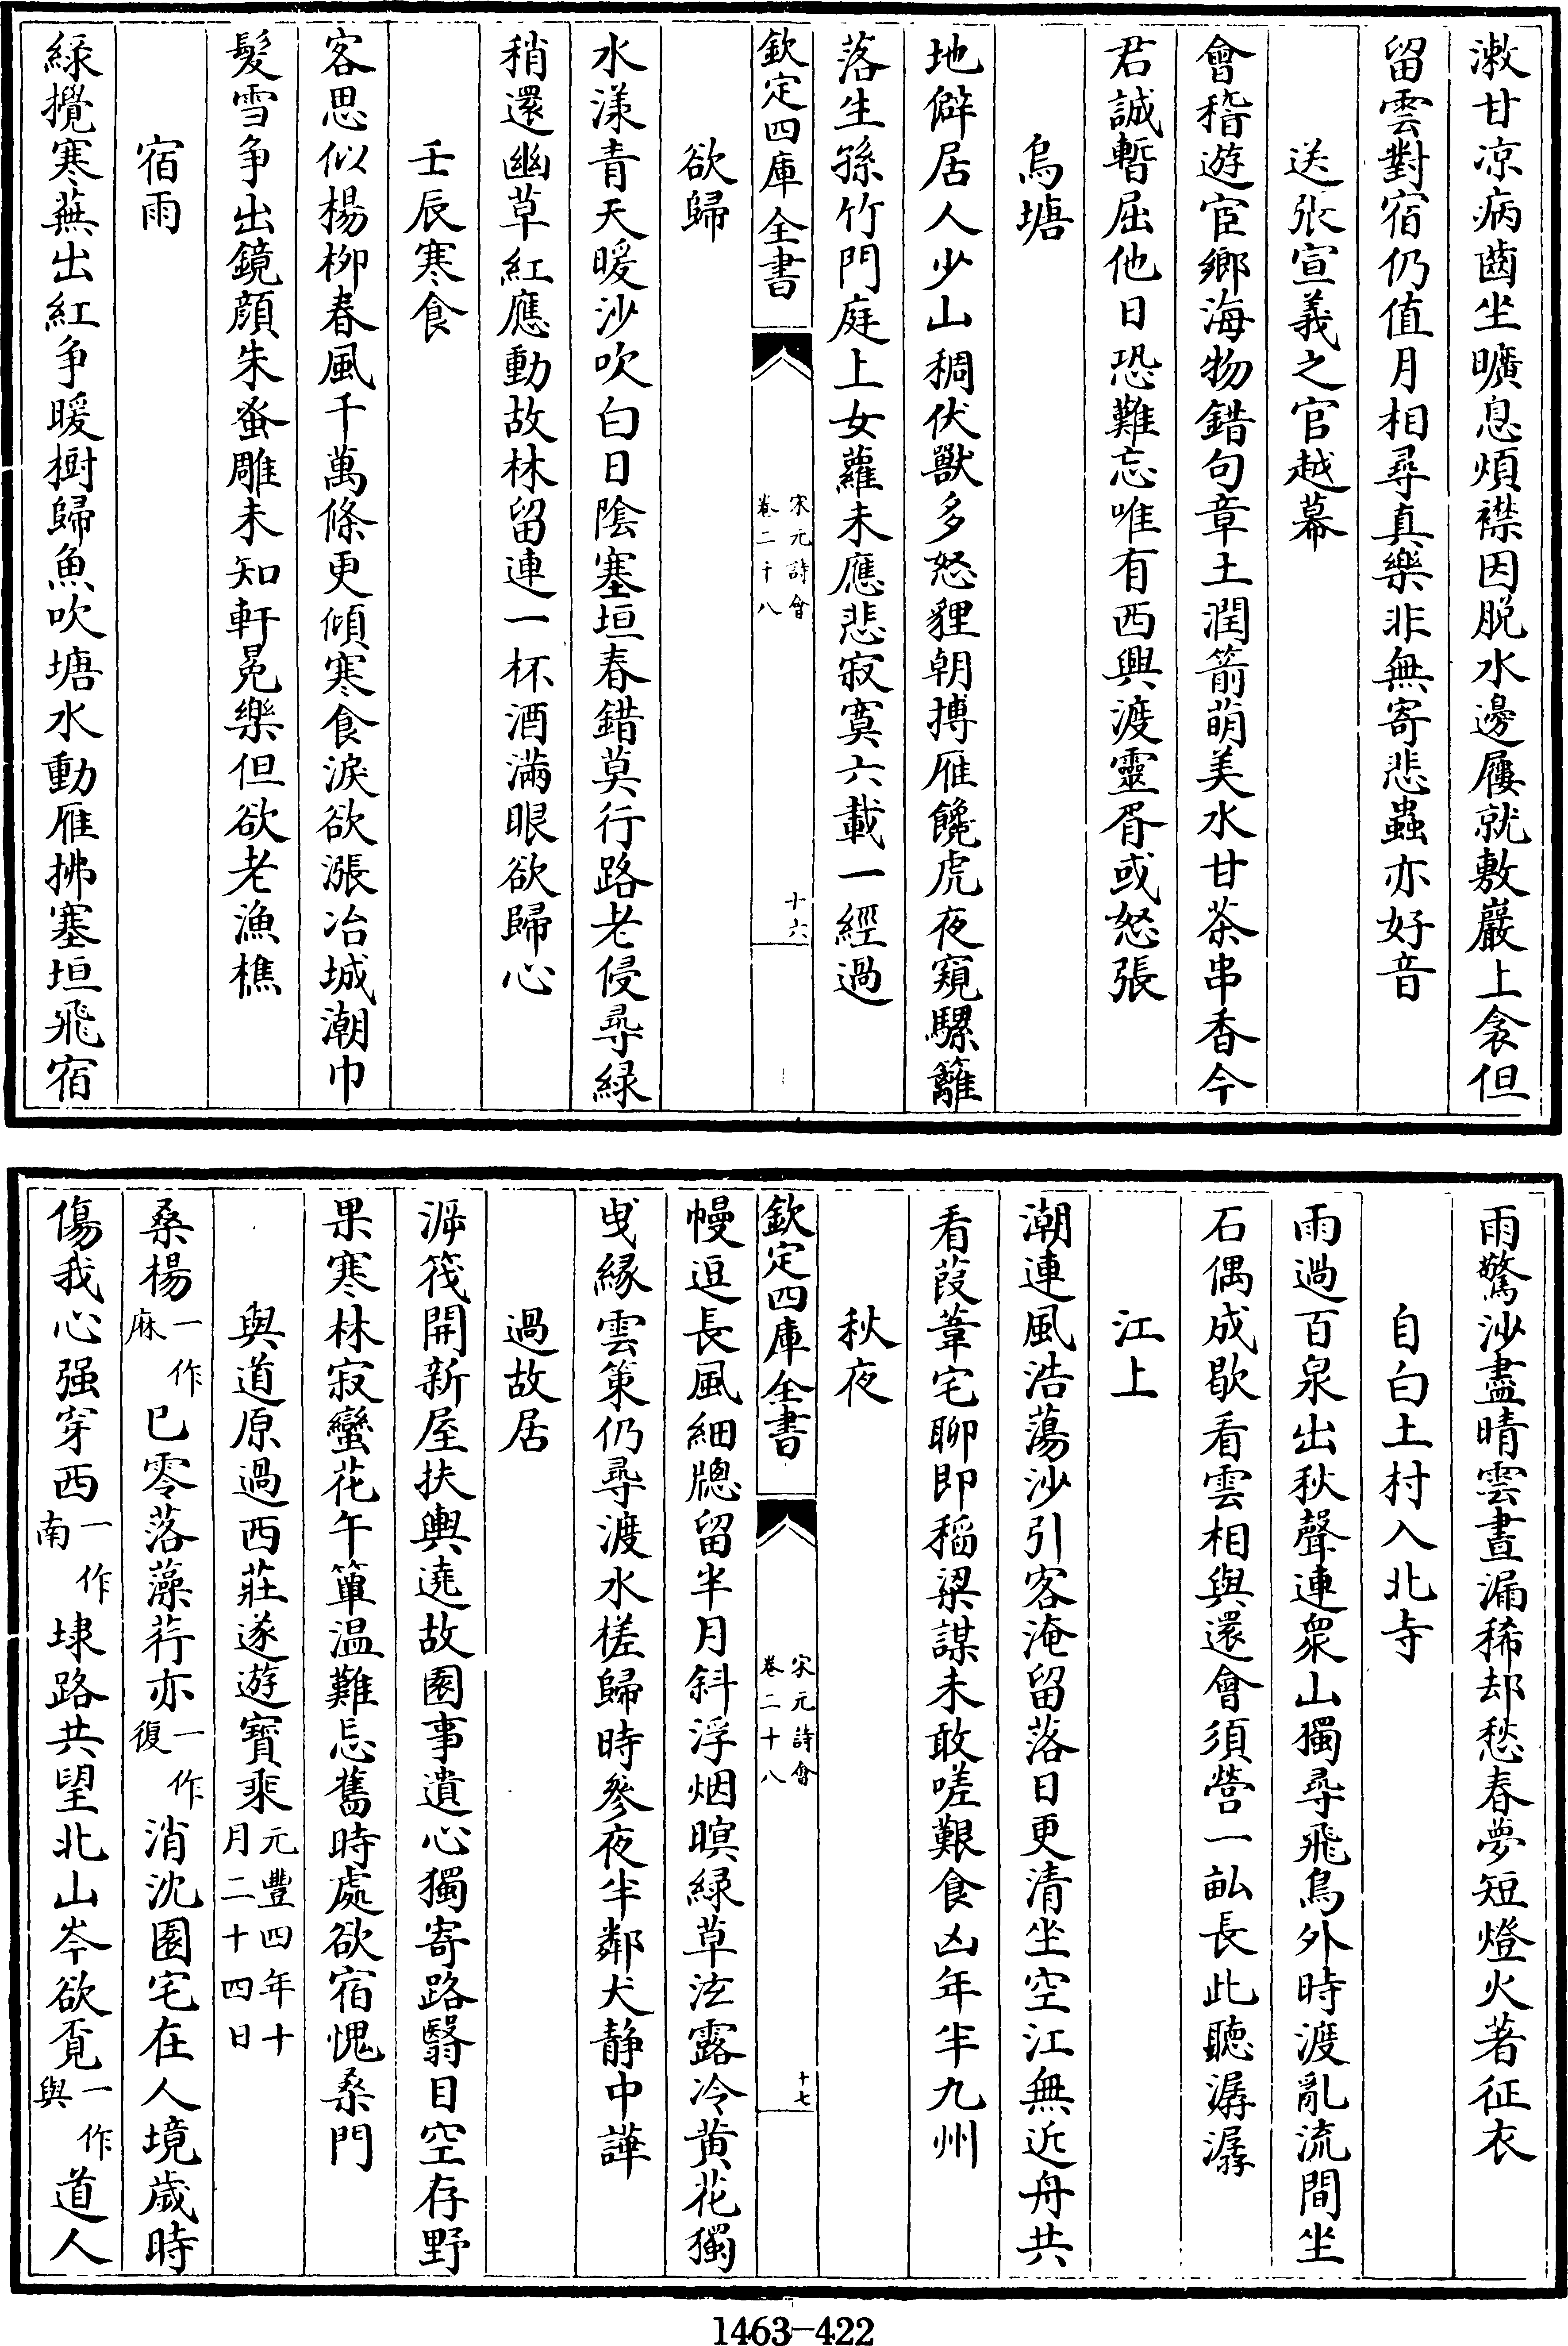 潄甘凉病齒坐曠息煩襟因脱水邊屨就敷巖上衾但
留雲對宿仍值月相尋真樂非無寄悲蟲亦好音
送張宣義之官越幕
會稽遊宦鄉海物錯句章土潤箭萌美水甘茶串香今
君誠暫屈他日恐難忘唯有西興渡靈胥或怒張
烏塘
地僻居人少山稠伏獸多怒貍朝搏雁饞虎夜窺騾籬
落生孫竹門庭上女蘿未應悲寂寞六載一經過
欽定四庫全書
宋元詩會
卷二十八
十六
欲歸
水漾青天暖沙吹白日陰塞垣春錯莫行路老侵尋緑
稍還幽草紅應動故林留連一杯酒滿眼欲歸心
壬辰寒食
客思似楊柳春風千萬條更傾寒食淚欲漲冶城潮巾
髮雪爭出鏡顔朱蚤雕未知軒冕樂但欲老漁樵
宿雨
緑攪寒蕪出紅爭暖樹歸魚吹塘水動雁拂塞垣飛宿
雨驚沙盡晴雲晝漏稀却愁春夢短燈火著征衣
自白土村入北寺
雨過百泉出秋聲連衆山獨尋飛鳥外時渡亂流間坐
石偶成歇看雲相與還會須營一畝長此聽潺潺
江上
潮連風浩蕩沙引客淹留落日更清坐空江無近舟共
看葭葦宅聊即稻粱謀未敢嗟艱食凶年半九州
秋夜
欽定四庫全書
宋元詩會
卷二十八
十七
幔逗長風細牕留半月斜浮烟暝緑草泫露冷黄花獨
曳緣雲策仍尋渡水槎歸時參夜半鄰犬静中譁
過故居
溽筏開新屋扶輿遶故園事遺心獨寄路翳目空存野
果寒林寂蠻花午簞温難忘舊時處欲宿愧桑門
與道原過西莊遂遊寶乘元豐四年十月二十四日
桑楊一作麻已零落藻荇亦一作復消沈園宅在人境歲時
傷我心强穿西一作南埭路共望北山岑欲覔一作與道人
1463-422